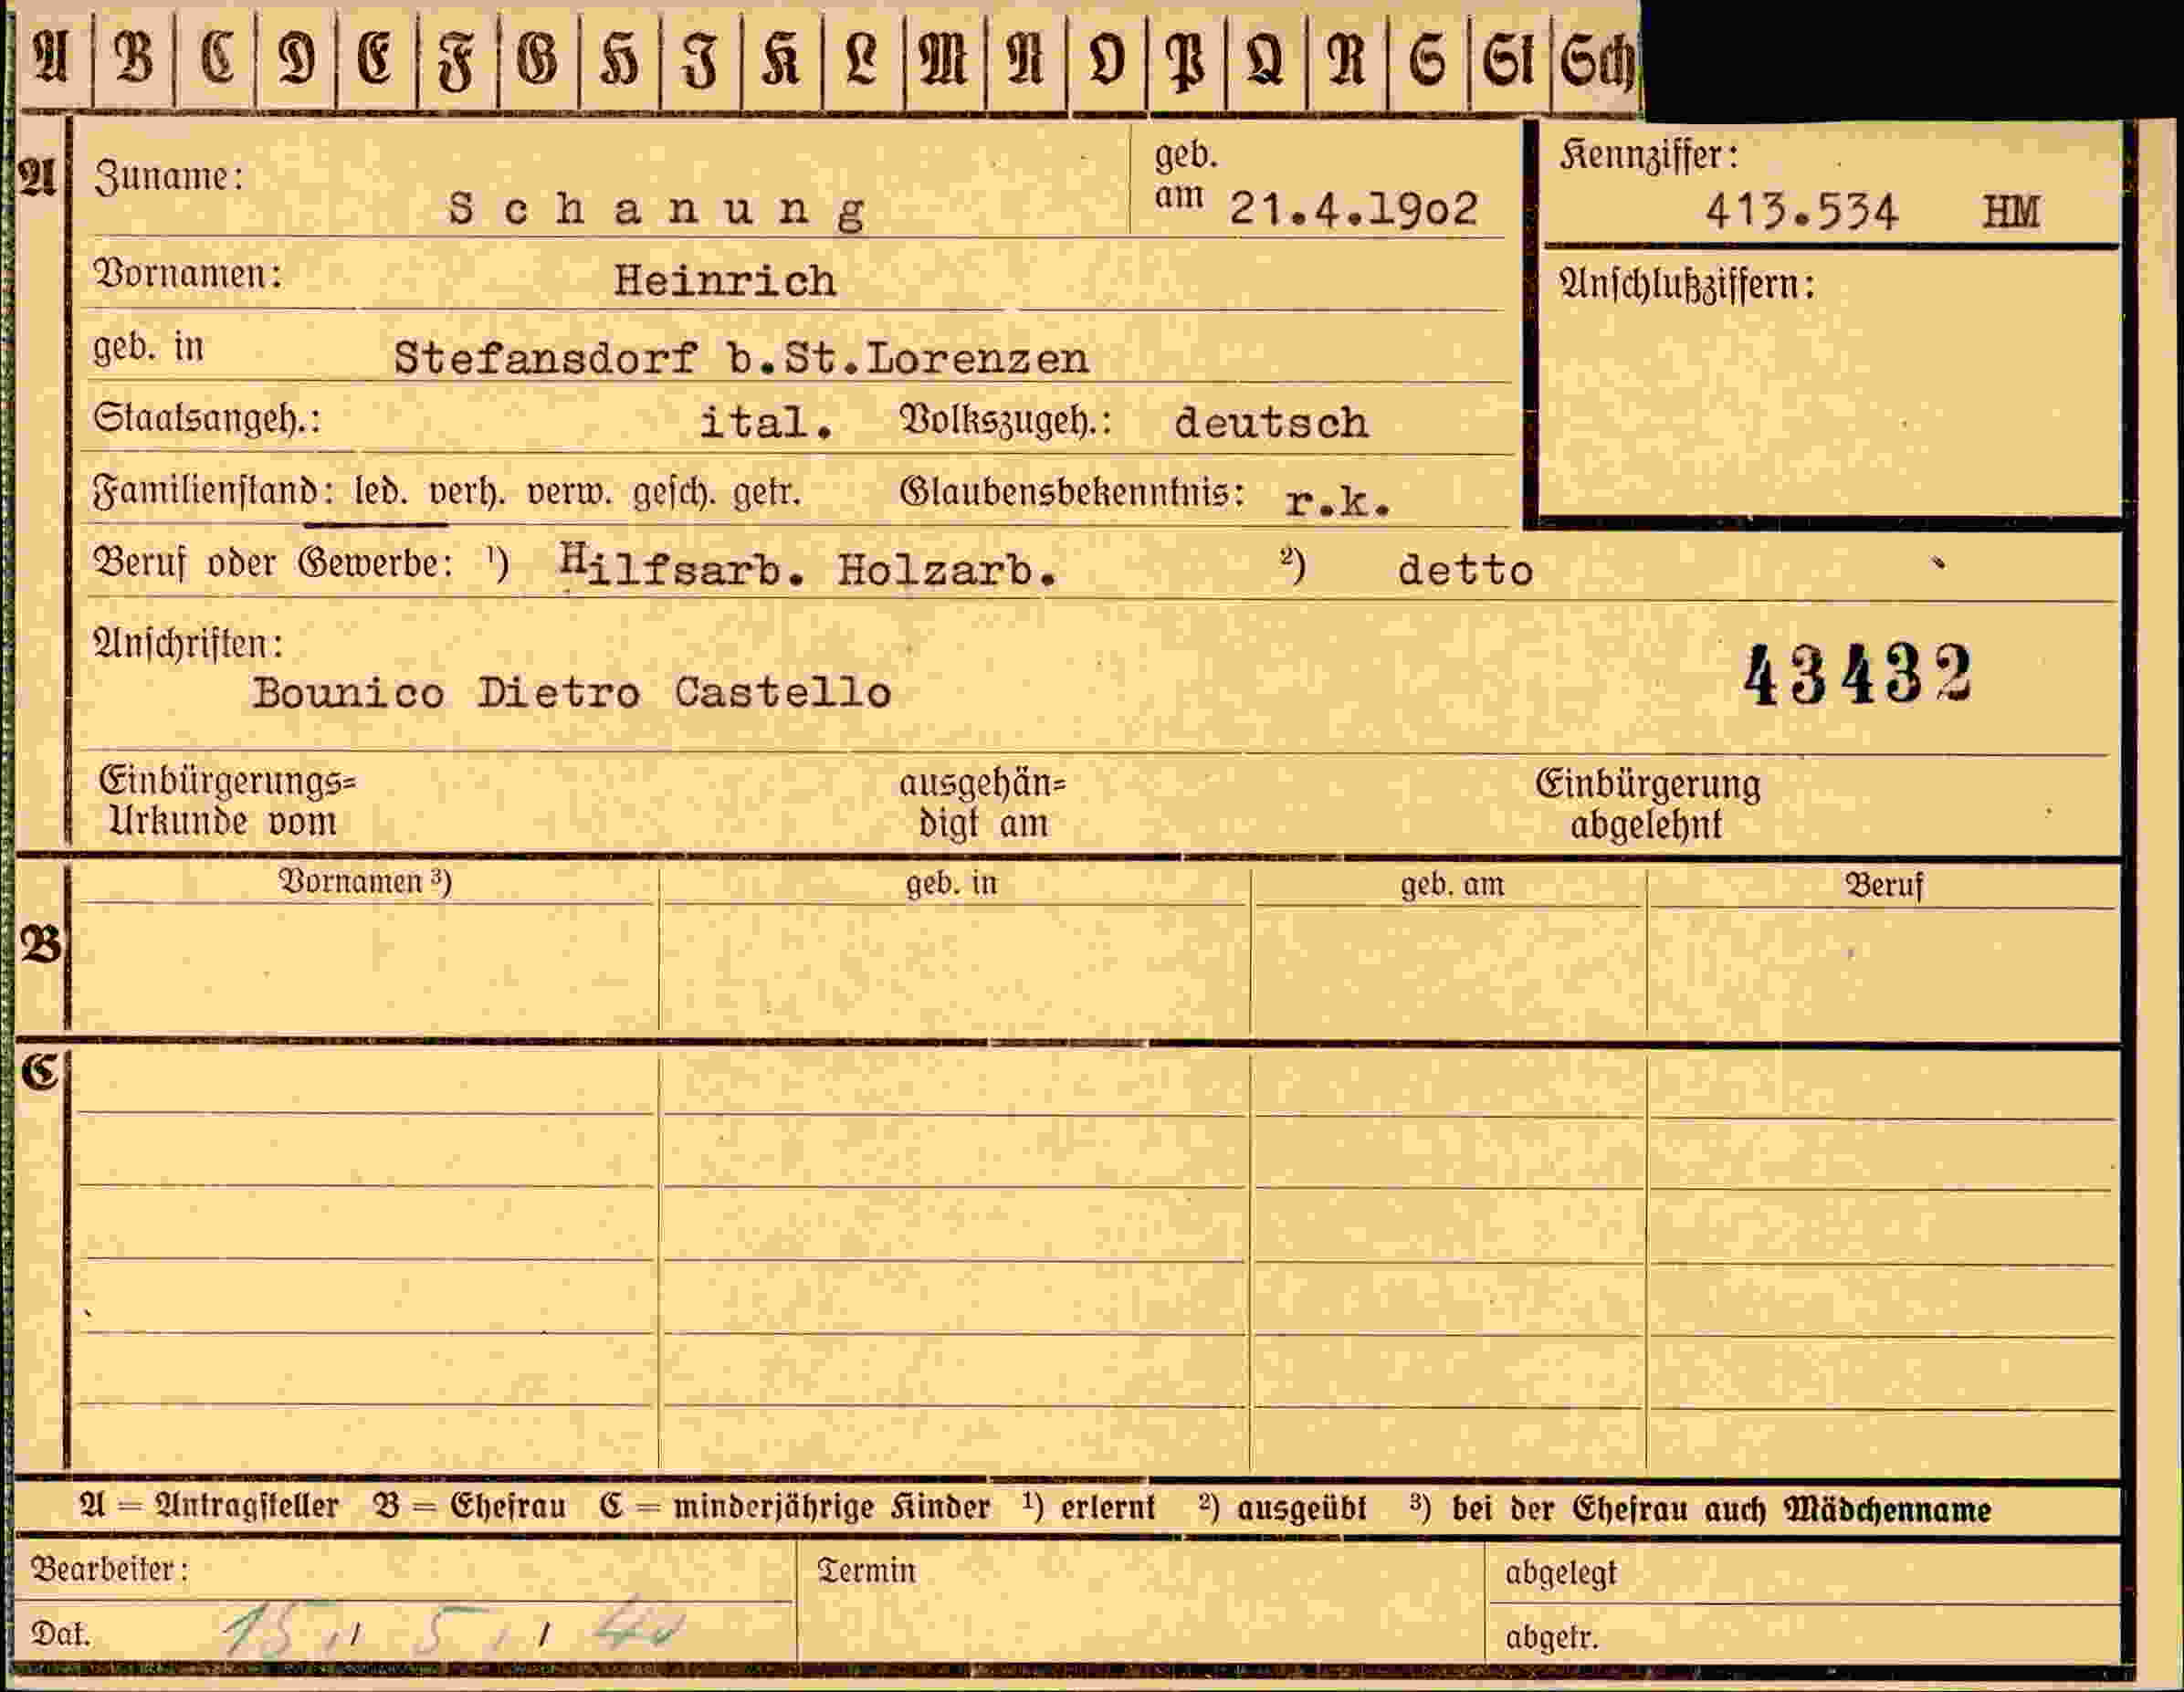 A B C D E F G H I K L M N O P Q R S St Sch
A Zuname: Schanung geb. am 21.4.19o2 Kennziffer: 413.534 HM
Vornamen: Heinrich Anschlußziffern:
geb. in Stefansdorf b.St.Lorenzen
Staatsangeh.: ital. Volkszugeh.: deutsch
Familienstand: led. verh. verw. gesch. getr. Glaubensbekenntnis: r.k.
Beruf oder Gewerbe: ¹) Hilfsarb. Holzarb. ²) detto
Anschriften:
Bounico Dietro Castello 43432
Einbürgerungs= Urkunde vom ausgehän= digt am Einbürgerung abgelehnt
Vornamen ³) geb. in geb. am Beruf
B
C
A = Antragsteller B = Ehefrau C = minderjährige Kinder ¹) erlernt ²) ausgeübt ³) bei der Ehefrau auch Mädchenname
Bearbeiter: Termin abgelegt
Dat. 15. 5. 40 abgetr.